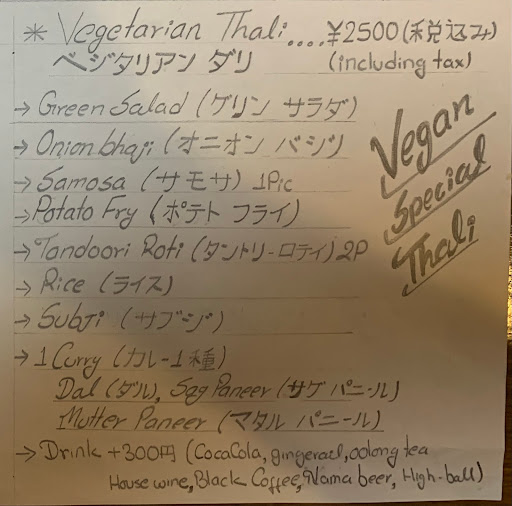 * Vegetarian Thali.... ¥2500(税込み)
ベジタリアン ダリ (including tax)
→ Green Salad (グリン サラダ)
→ Onion bhaji (オニオン バジ)
→ Samosa (サモサ) 1Pic
→ Potato Fry (ポテト フライ)
→ Tandoori Roti (タントリ-ロティ) 2P
→ Rice (ライス)
→ Subji (サブジ)
→ 1 Curry (カレー1種)
Dal (ダル), Sag Paneer (サグ パニール)
Mutter Paneer (マタル パニール)
→ Drink +300円 (CocaCola, gingerael, oolong tea
House wine, Black Coffee, Nama beer, High-ball)
Vegan
Special
Thali